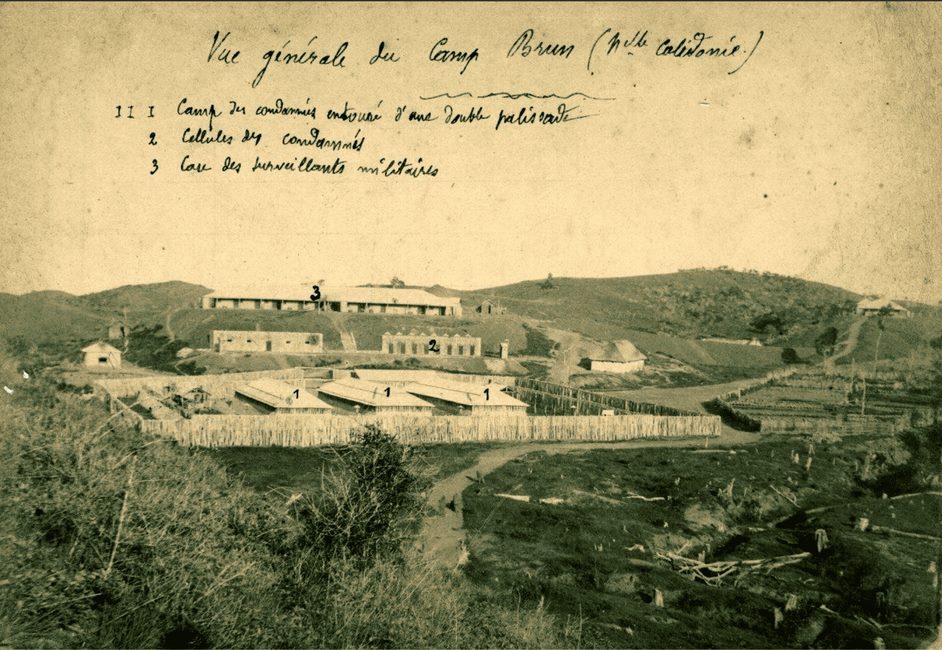 Vue générale du Camp Brun (Nlle Calédonie.)
1 1 1 Camp des condamnés entouré d'une double palissade
2 Cellules des condamnés
3 Case des surveillants militaires
3
2
1 1 1